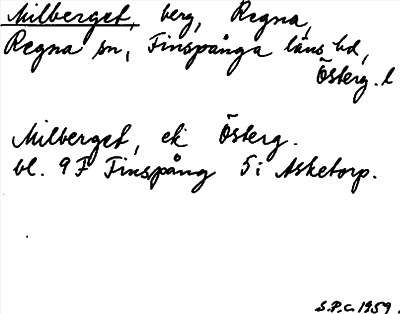 Milberget, berg, Regna,
Regna sn, Finspånga läns hd,
Österg. l
Milberget, ek Österg.
bl. 9F Finspång 5i Asketorp.
S.P.C. 1959.